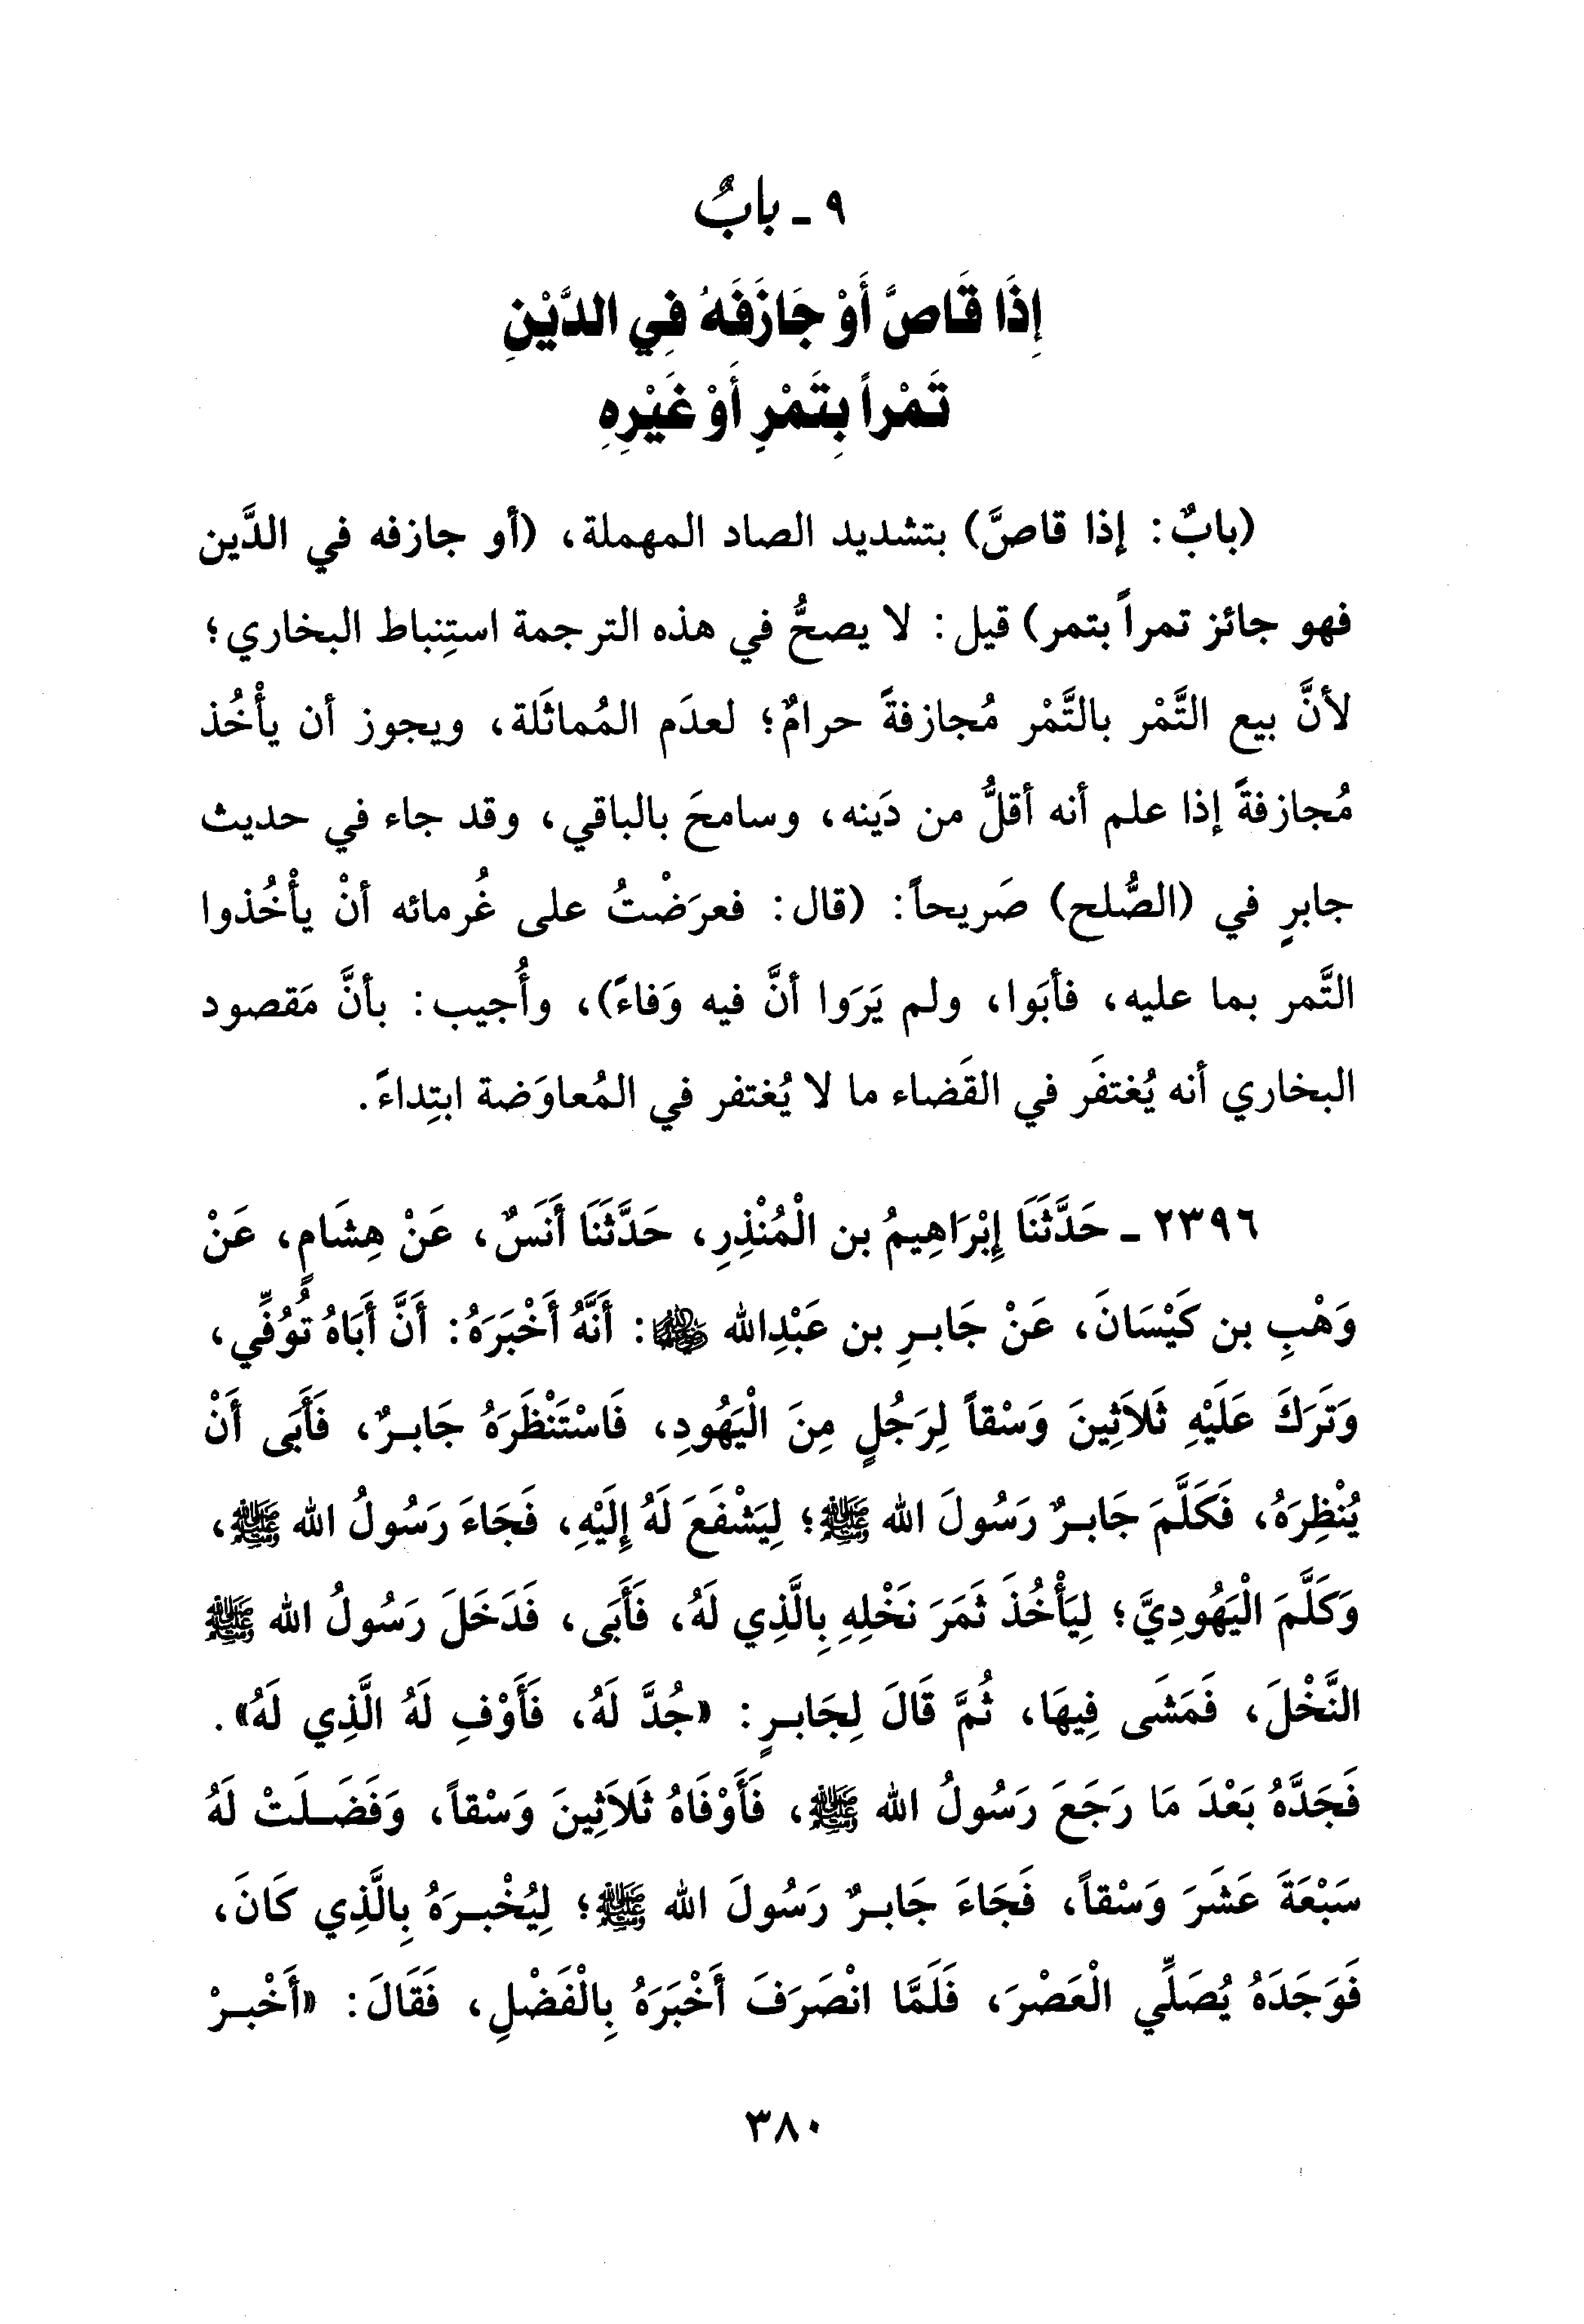 ٩ ـ بابٌ
إِذَا قَاصَّ أَوْ جَازَفَهُ فِي الدَّيْنِ
تَمْراً بِتَمْرٍ أَوْ غَيْرِهِ
(بابٌ: إذا قاصَّ) بتشديد الصاد المهملة، (أو جازفه في الدَّين
فهو جائز تمراً بتمر) قيل: لا يصحُّ في هذه الترجمة استِنباط البخاري؛
لأنَّ بيع التَّمْر بالتَّمْر مُجازفةً حرامٌ؛ لعدَم المُماثَلة، ويجوز أن يأْخُذ
مُجازفةً إذا علم أنه أقلُّ من دَينه، وسامحَ بالباقي، وقد جاء في حديث
جابرٍ في (الصُّلح) صَريحاً: (قال: فعرَضْتُ على غُرمائه أنْ يأْخُذوا
التَّمر بما عليه، فأبَوا، ولم يَرَوا أنَّ فيه وَفاءً)، وأُجيب: بأنَّ مَقصود
البخاري أنه يُغتفَر في القَضاء ما لا يُغتفر في المُعاوَضة ابتِداءً.
٢٣٩٦ ـ حَدَّثَنَا إِبْرَاهِيمُ بن الْمُنْذِرِ، حَدَّثَنَا أَنَسٌ، عَنْ هِشَامٍ، عَنْ
وَهْبِ بن كَيْسَانَ، عَنْ جَابِرِ بن عَبْدِالله ﵄: أَنَّهُ أَخْبَرَهُ: أَنَّ أَبَاهُ تُوُفِّي،
وَتَرَكَ عَلَيْهِ ثَلاَثِينَ وَسْقاً لِرَجُلٍ مِنَ الْيَهُودِ، فَاسْتَنْظَرَهُ جَابِرٌ، فَأَبَى أَنْ
يُنْظِرَهُ، فَكَلَّمَ جَابِرٌ رَسُولَ الله ﷺ؛ لِيَشْفَعَ لَهُ إِلَيْهِ، فَجَاءَ رَسُولُ الله ﷺ،
وَكَلَّمَ الْيَهُودِيَّ؛ لِيَأْخُذَ ثَمَرَ نَخْلِهِ بِالَّذِي لَهُ، فَأَبَى، فَدَخَلَ رَسُولُ الله ﷺ
النَّخْلَ، فَمَشَى فِيهَا، ثُمَّ قَالَ لِجَابِرٍ: «جُدَّ لَهُ، فَأَوْفِ لَهُ الَّذِي لَهُ».
فَجَدَّهُ بَعْدَ مَا رَجَعَ رَسُولُ الله ﷺ، فَأَوْفَاهُ ثَلاَثِينَ وَسْقاً، وَفَضَلَتْ لَهُ
سَبْعَةَ عَشَرَ وَسْقاً، فَجَاءَ جَابِرٌ رَسُولَ الله ﷺ؛ لِيُخْبِرَهُ بِالَّذِي كَانَ،
فَوَجَدَهُ يُصَلِّي الْعَصْرَ، فَلَمَّا انْصَرَفَ أَخْبَرَهُ بِالْفَضْلِ، فَقَالَ: «أَخْبِرْ
٣٨٠